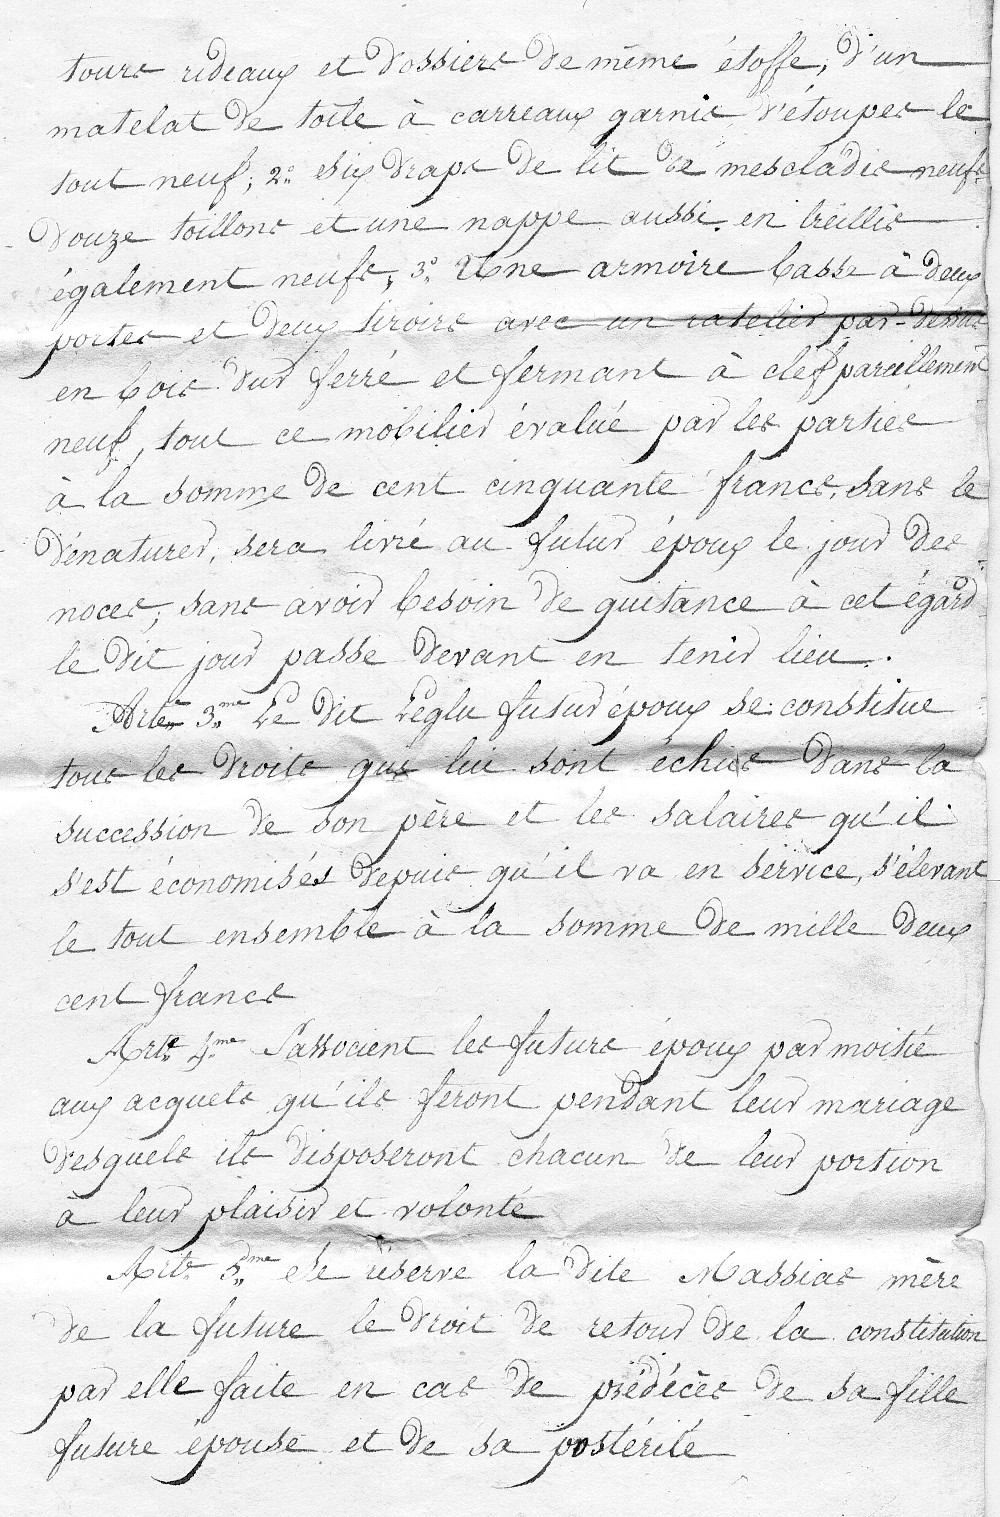 tours rideaux et dossiers de même étoffe, d'un
matelat de toile à carreaux garnis d'étoupes le
tout neuf; 2° Six draps de lit de mescladis neufs
douze toillons et une nappe aussi en treillis
également neufs, 3° Une armoire basse à deux
portes et deux tiroirs avec un ratelier par-dessus
en bois dur ferré et fermant à clef pareillement
neuf, tout ce mobilier évalué par les parties
à la somme de cent cinquante francs, sans le
dénaturer, sera livré au futur époux le jour des
noces, sans avoir besoin de quitance à cet égard
le dit jour passé devant en tenir lieu.
Arte 3.me Le dit Léglu futur époux se constitue
tous les droits qui lui sont échus dans la
succession de son père et les salaires qu'il
s'est économisés depuis qu'il va en service, s'élevant
le tout ensemble à la somme de mille deux
cent francs
Arte 4.me S'associent les futurs époux par moitié
aux acquets qu'ils feront pendant leur mariage
desquels ils disposeront chacun de leur portion
à leur plaisir et volonté
Arte 5.me Se réserve la dite Massias mère
de la future le droit de retour de la constitution
par elle faite en cas de prédécès de sa fille
future épouse et de sa postérité